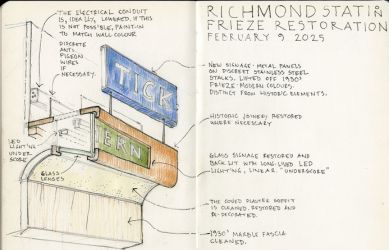 RICHMOND STATION
FRIEZE RESTORATION
FEBRUARY 9 2025
THE ELECTRICAL CONDUIT
IS, IDEALLY, LOWERED. IF THIS
IS NOT POSSIBLE, PAINT IN
TO MATCH WALL COLOUR
DISCRETE
ANTI-
PIGEON
WIRES
IF
NECESSARY.
TICK
ERN
LED
LIGHTING
UNDER
SCORE
GLASS
LENSES
NEW SIGNAGE: METAL PANELS
ON DISCREET STAINLESS STEEL
STALKS. LIFTED OFF 1930s
FRIEZE. MODERN COLOURS.
DISTINCT FROM HISTORIC ELEMENTS.
HISTORIC JOINERY RESTORED
WHERE NECESSARY
GLASS SIGNAGE RESTORED AND
BACK LIT WITH LONG-LIVED LED
LIGHTING, LINEAR "UNDERSCORE"
THE COVED PLASTER SOFFIT
IS CLEANED, RESTORED AND
RE-DECORATED.
1930s MARBLE FASCIA
CLEANED.